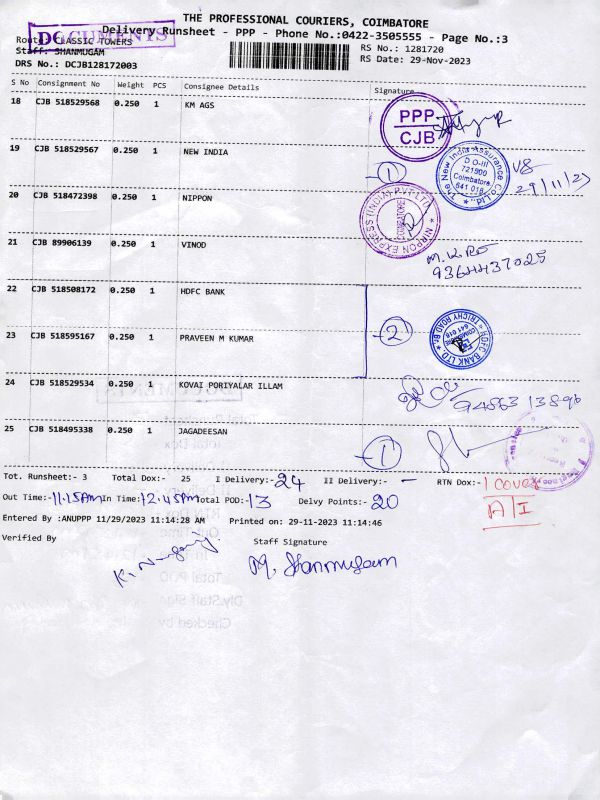 THE PROFESSIONAL COURIERS, COIMBATORE
Delivery Runsheet - PPP - Phone No.:0422-3505555 - Page No.:3
DOCUMENTS
Route: CLASSIC TOWERS
RS No.: 1281720
Staff: SHANMUGAM
RS Date: 29-Nov-2023
DRS No.: DCJB128172003
S No Consignment No Weight PCS Consignee Details Signature
18 CJB 518529568 0.250 1 KM AGS
PPP
CJB
19 CJB 518529567 0.250 1 NEW INDIA
1
The New India Assurance Co. Ltd.
D O-III
721900
Coimbatore
641 018
29/11/23
20 CJB 518472398 0.250 1 NIPPON
NIPPON EXPRESS (INDIA) PVT LTD
COIMBATORE
21 CJB 89906139 0.250 1 VINOD
9364437025
22 CJB 518508172 0.250 1 HDFC BANK
23 CJB 518595167 0.250 1 PRAVEEN M KUMAR
2
HDFC BANK LTD
TRICHY ROAD Br.
641 018
24 CJB 518529534 0.250 1 KOVAI PORIYALAR ILLAM
25 CJB 518495338 0.250 1 JAGADEESAN
1
Tot. Runsheet:- 3 Total Dox:- 25 I Delivery:- 24 II Delivery:- - RTN Dox:- 1 cover
Out Time:- 11.15Am In Time: 12.45Pm Total POD: 13 Delvy Points:- 20
A/I
Entered By :ANUPPP 11/29/2023 11:14:28 AM Printed on: 29-11-2023 11:14:46
Verified By Staff Signature
M. Shanmugam